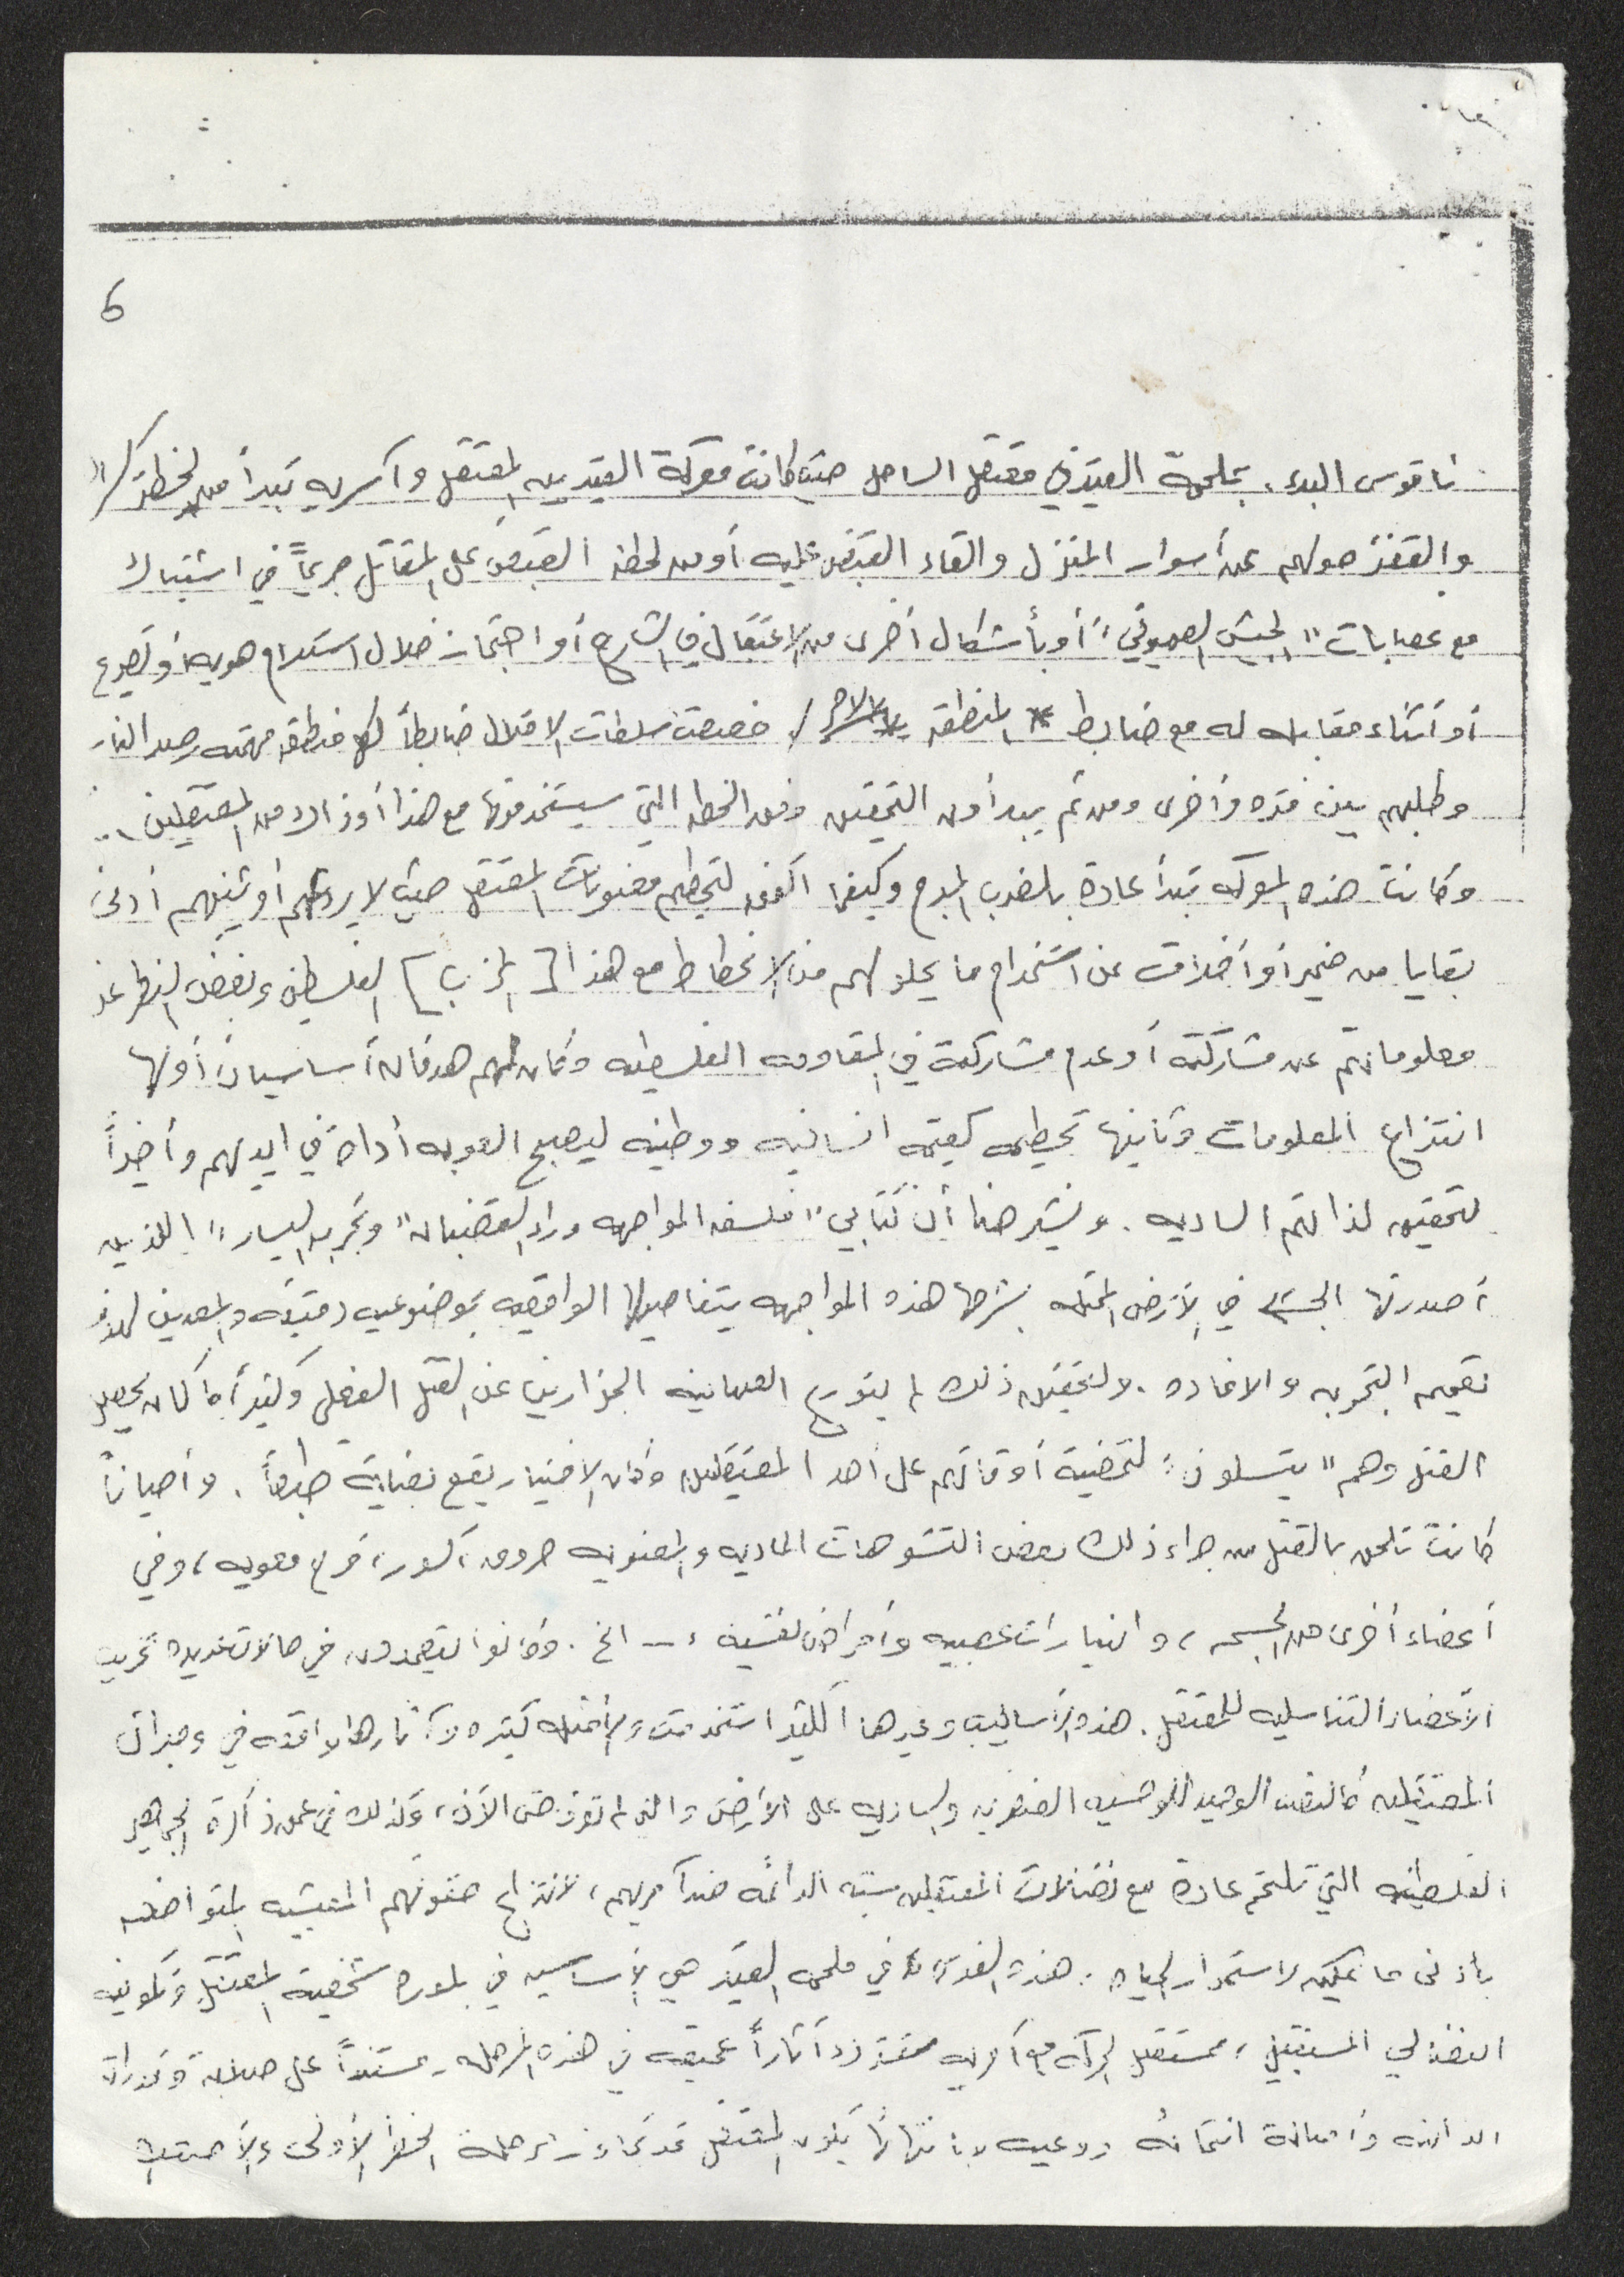 6
ناقوس البدء. بملحمة القيد في معتقل الساحل حيث كانت معركة القيد بين المعتقل وآسريه تبدأ من لحظة
والقفز حولهم عن أسوار المنزل والقاء القبض عليه أو من لحظة القبض على المقاتل جريحاً في اشتباك
مع عصابات "الجيش الصهيوني" أو بأشكال أخرى من الاعتقال في الشارع أو احتجاز خلال استلام هويه أو تصريح
أو أثناء مقابله له مع ضابط المنطقه / خصصت سلطات الاحتلال ضابطاً لكل منطقه مهمته رصد الناس
وطلبهم بين فتره وأخرى ومن ثم يبدأون التحقيق وفق الخطه التي سيستخدمونها مع هذا أو ذاك من المعتقلين ..
وكانت هذه المعركه تبدأ عادة بالضرب المبرح وكيفما اتفق لتحطيم معنويات المعتقل حيث لا يردعهم أو يثنيهم أدنى
بقايا من ضمير أو أخلاق عن استخدام ما يحلو لهم من الانحطاط مع هذا [ ] الفلسطيني وبغض النظر عن
معلوماتهم عن مشاركته أو عدم مشاركته في المقاومه الفلسطينيه وكان لهم هدفان أساسيان أولها
انتزاع المعلومات وثانيها تحطيمه كقيمه انسانيه ووطنيه ليصبح العوبه أداة في ايديهم وأخيراً
لتحقيق لذاتهم الساديه. ونشير هنا أن كتابي "فلسفه المواجهه وراء القضبان" و الذين
أصدرتها الجبهه في الأرض المحتله بشرحها هذه المواجهه بتفاصيلها الواقعيه بموضوعيه دقيقه
تعميم التجربه والافاده. ولتحقيق ذلك لم يتورع الصهاينه الجزارين عن القتل الفعلي وكثيراً ما كان يحصل
القتل وهم "يتسلون" لتمضية أوقاتهم على أحد المعتقلين وكان الاختيار يقع بعنايه طبعاً. وأحياناً
كانت تلحق بالقتل من جراء ذلك بعض التشوهات الماديه والمعنويه حروق، كسور، قرح معويه، وفي
أعضاء أخرى من الجسم، وانهيارات عصبيه وأمراض نفسيه، ... الخ. وكانوا يتعمدون في حالات عديده تخريب
الأعضاء التناسليه للمعتقل. هذه الأساليب وغيرها الكثير استخدمت والأمثله كثيره وآثارها لا في وجدان
المعتقلين الوحيد للوحشيه العنصريه والساديه على الأرض والتي لم تغرق حتى الآن، وكذلك في عمق ذاكرة الجماهير
الفلسطينيه التي تلتحم عادة مع نضالات المعتقلين الدائمه ضد آسريهم، لانتزاع حقوقهم المعيشيه المتواضعه
بأدنى ما يمكن لاستمرار الحياه. هذه في ملحمه القيد هي الأساسيه في بلورة شخصيه المعتقل وتكوينه
النضالي المستقبلي، مستقبل تترك آثاراً عميقه في هذه المرحله، مستنداً على صلابه وقدرات
الذاتيه وأصالة انتمائه ووعيه بانتهائها يكون المعتقل قد تجاوز مرحلة الخطر الأولى